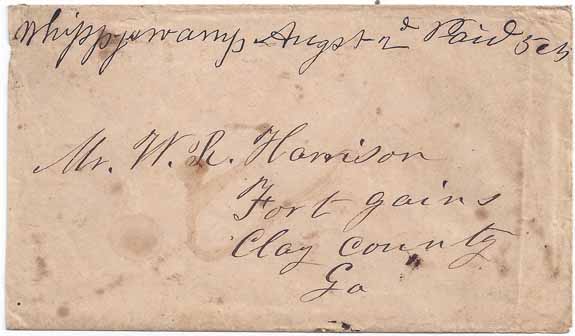 Whippyswamp Augst 2d Paid 5cts
Mr. W. L. Harrison
Fort gains
Clay county
Ga